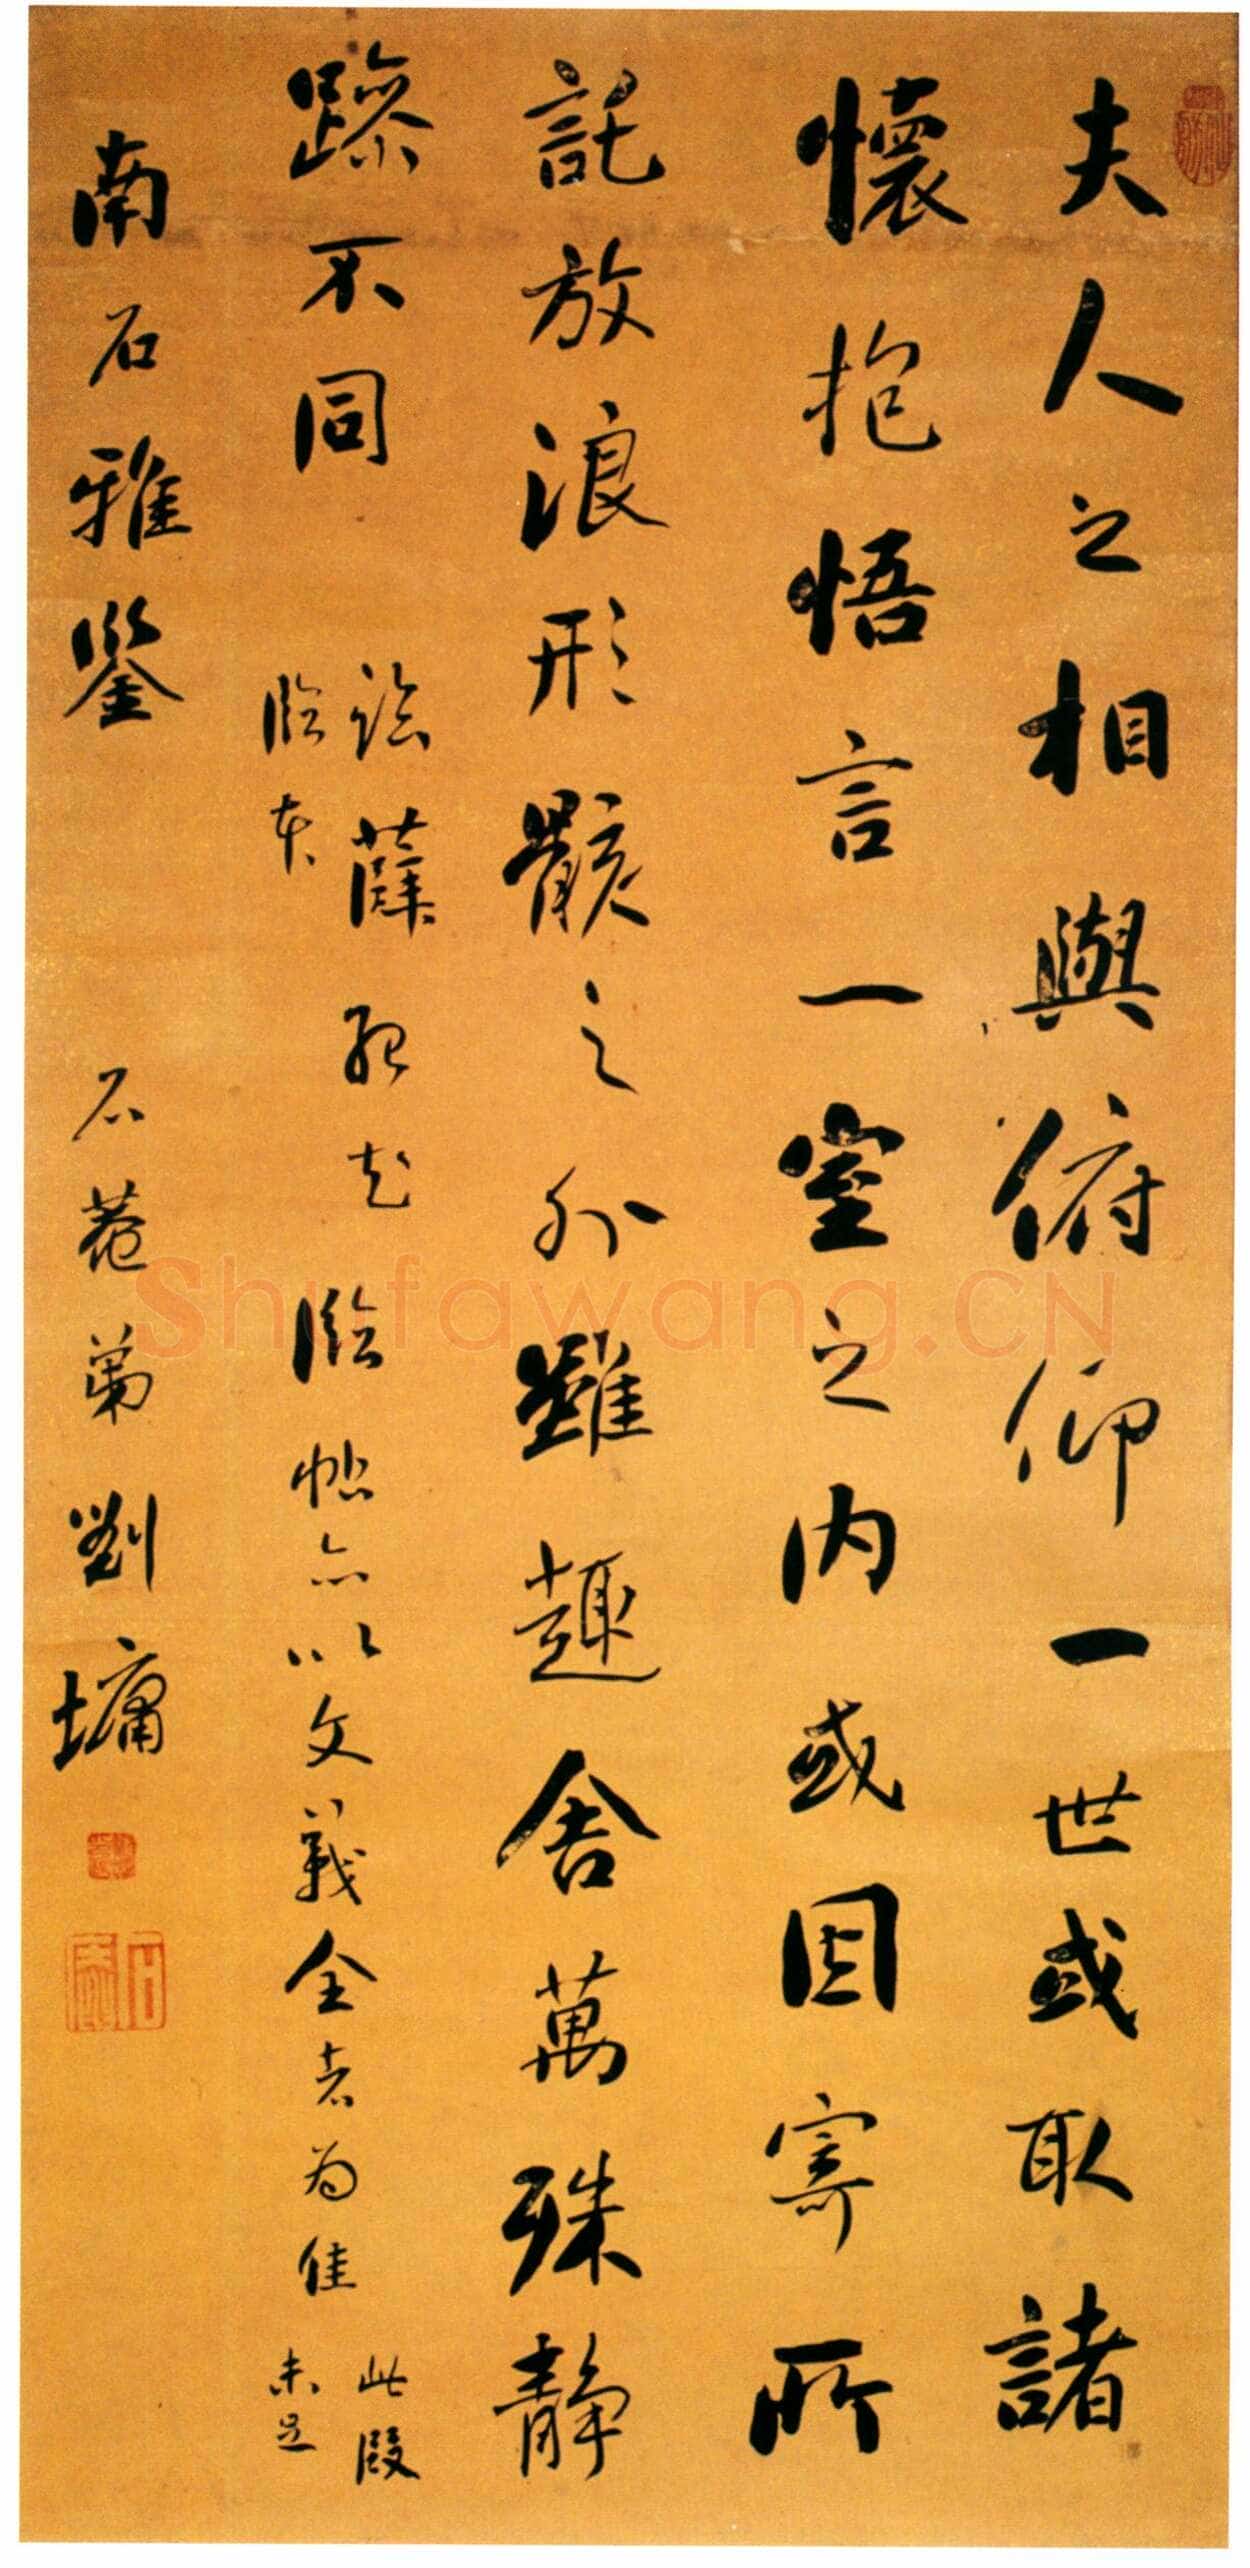 夫人之相與俯仰一世或取諸
懷抱悟言一室之内或因寄所
託放浪形骸之外雖趣舍萬殊靜
躁不同
臨本
臨帖亦以文義全者為佳
此段
未足
南石雅鑒 石菴弟劉墉
Shufawang.CN